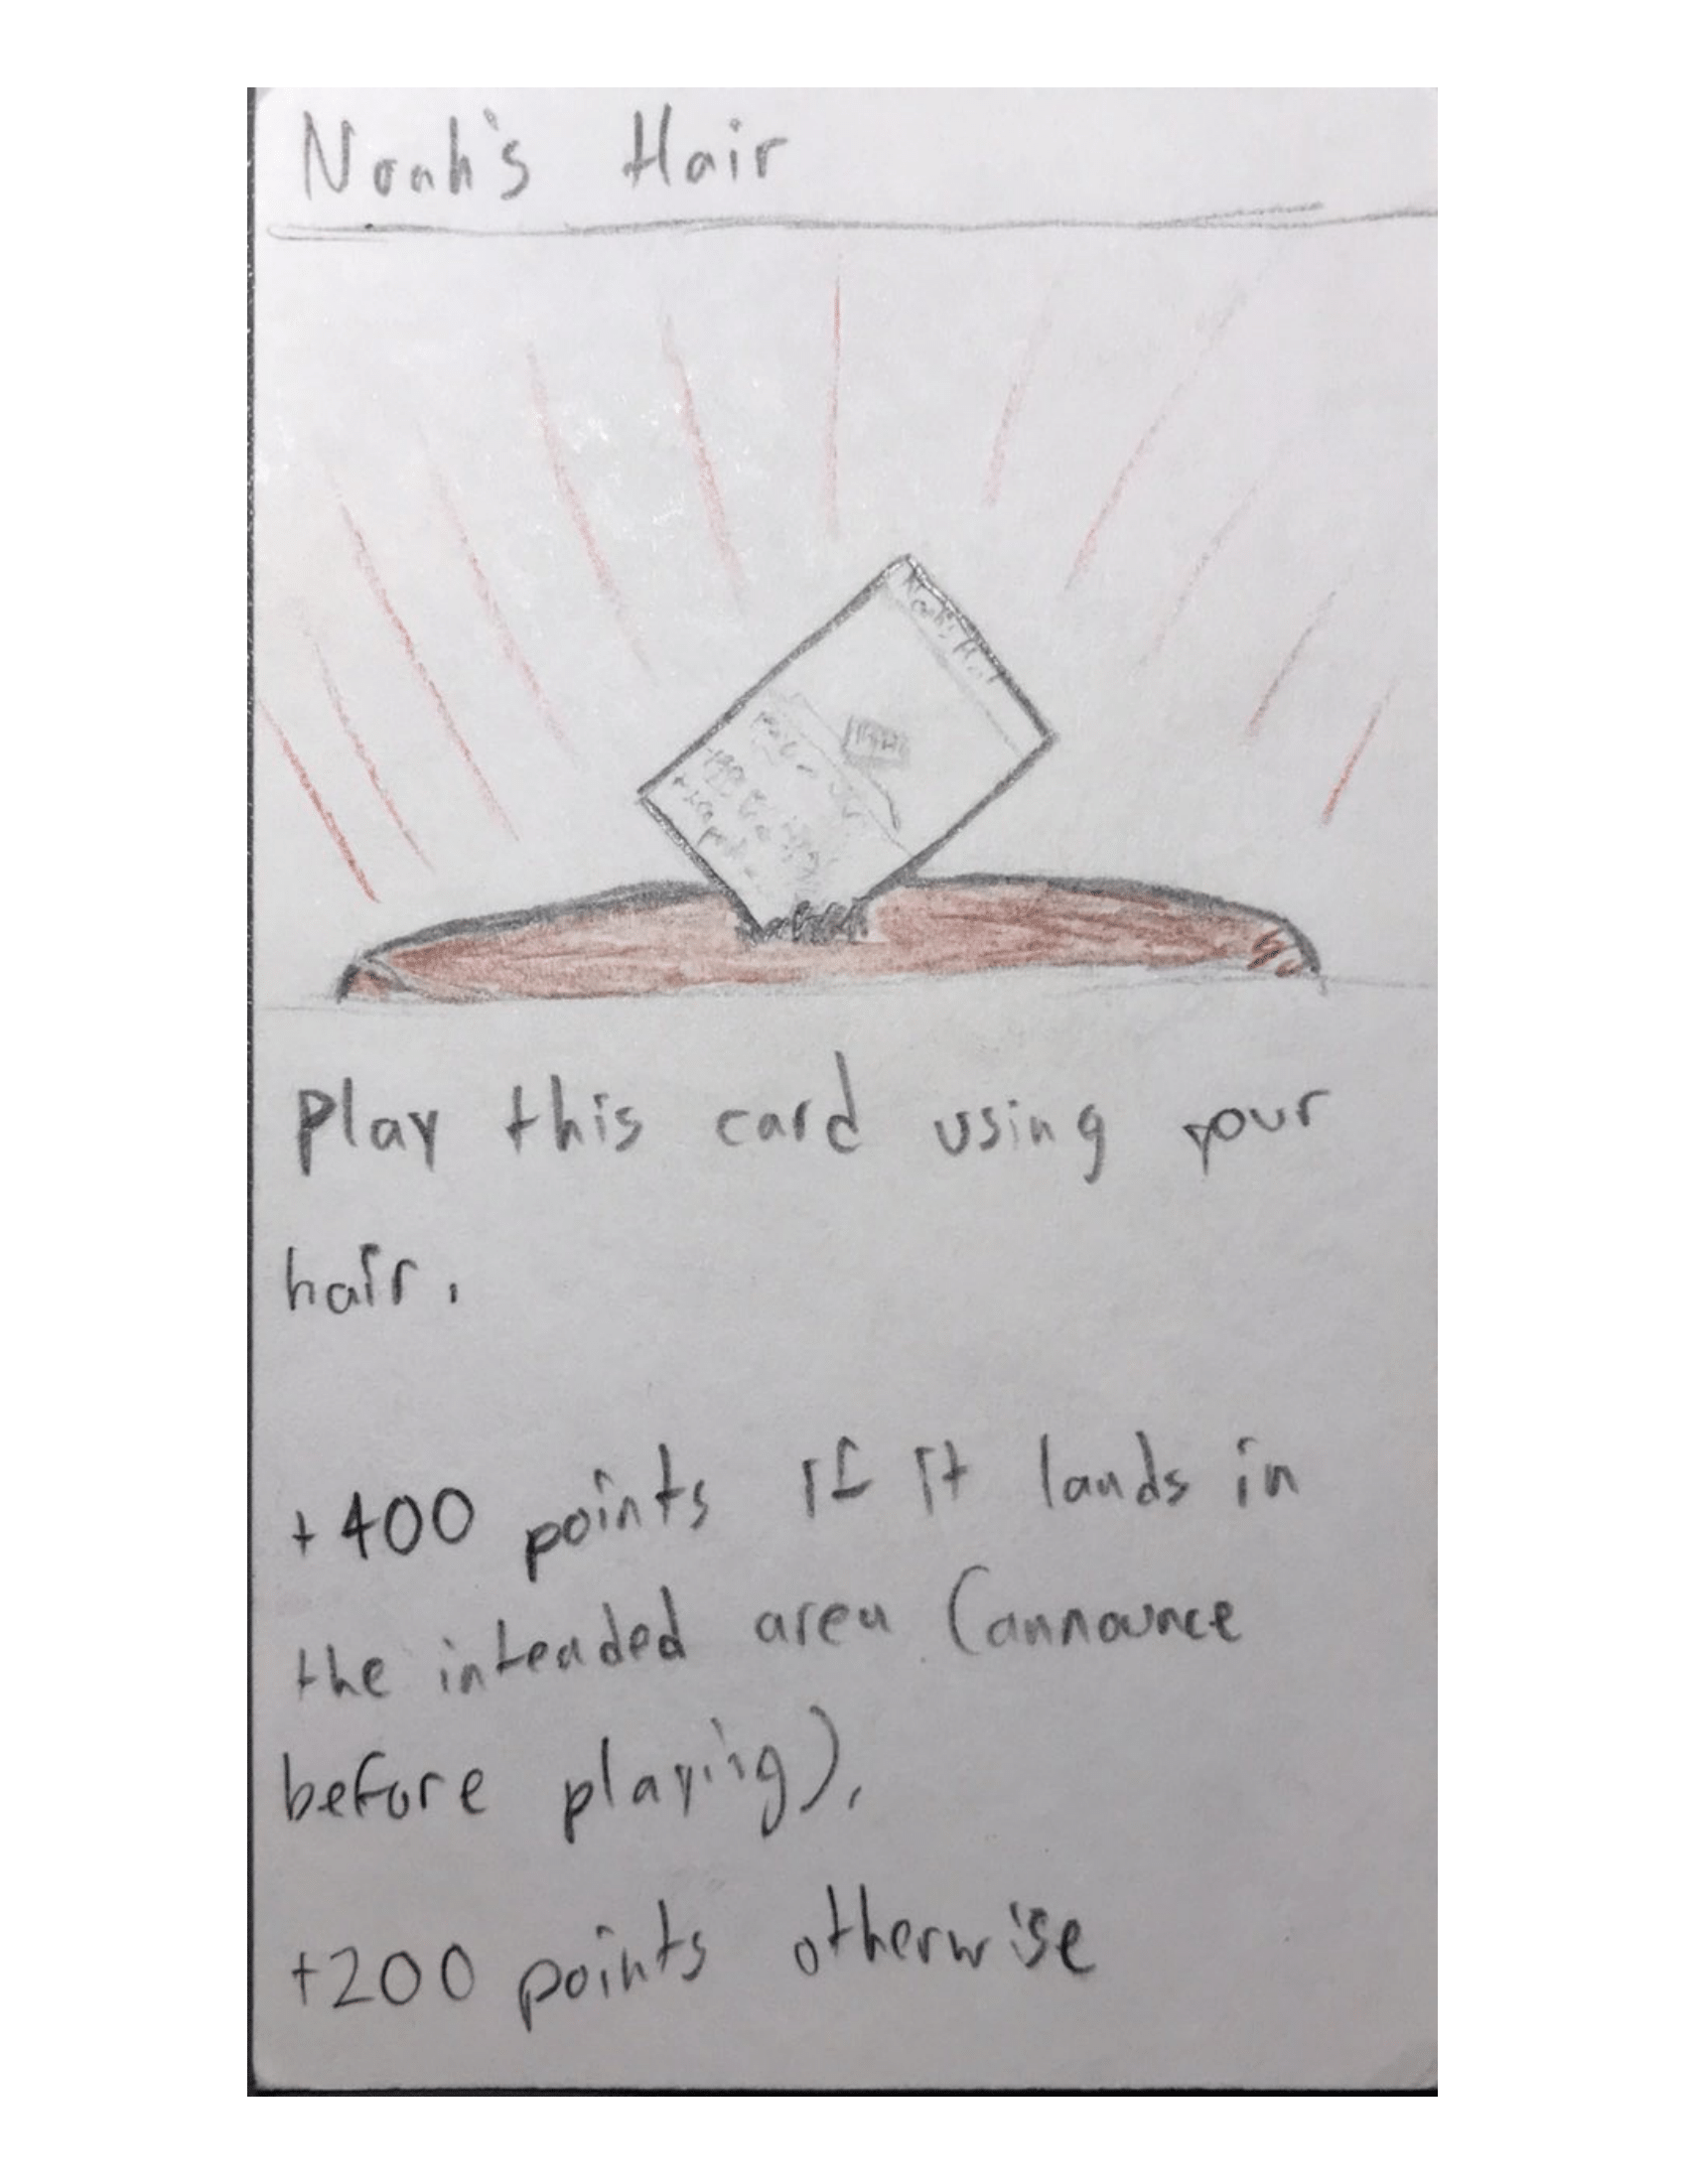 Noah's Hair
Noah's Hair
Play this card using your
hair.
+400 points if it lands in
the intended area (announce
before playing).
+200 points otherwise